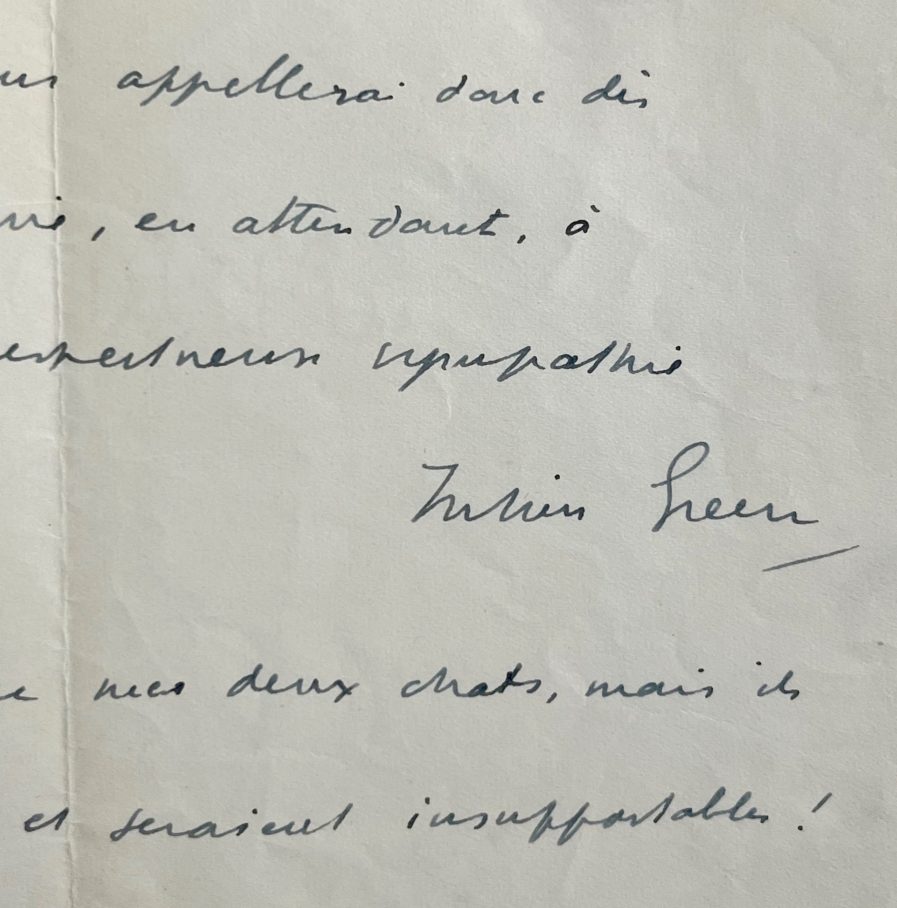 appellerai donc dès
, en attendant, à
respectueuse sympathie
Julien Green
mes deux chats, mais ils
et seraient insupportables !